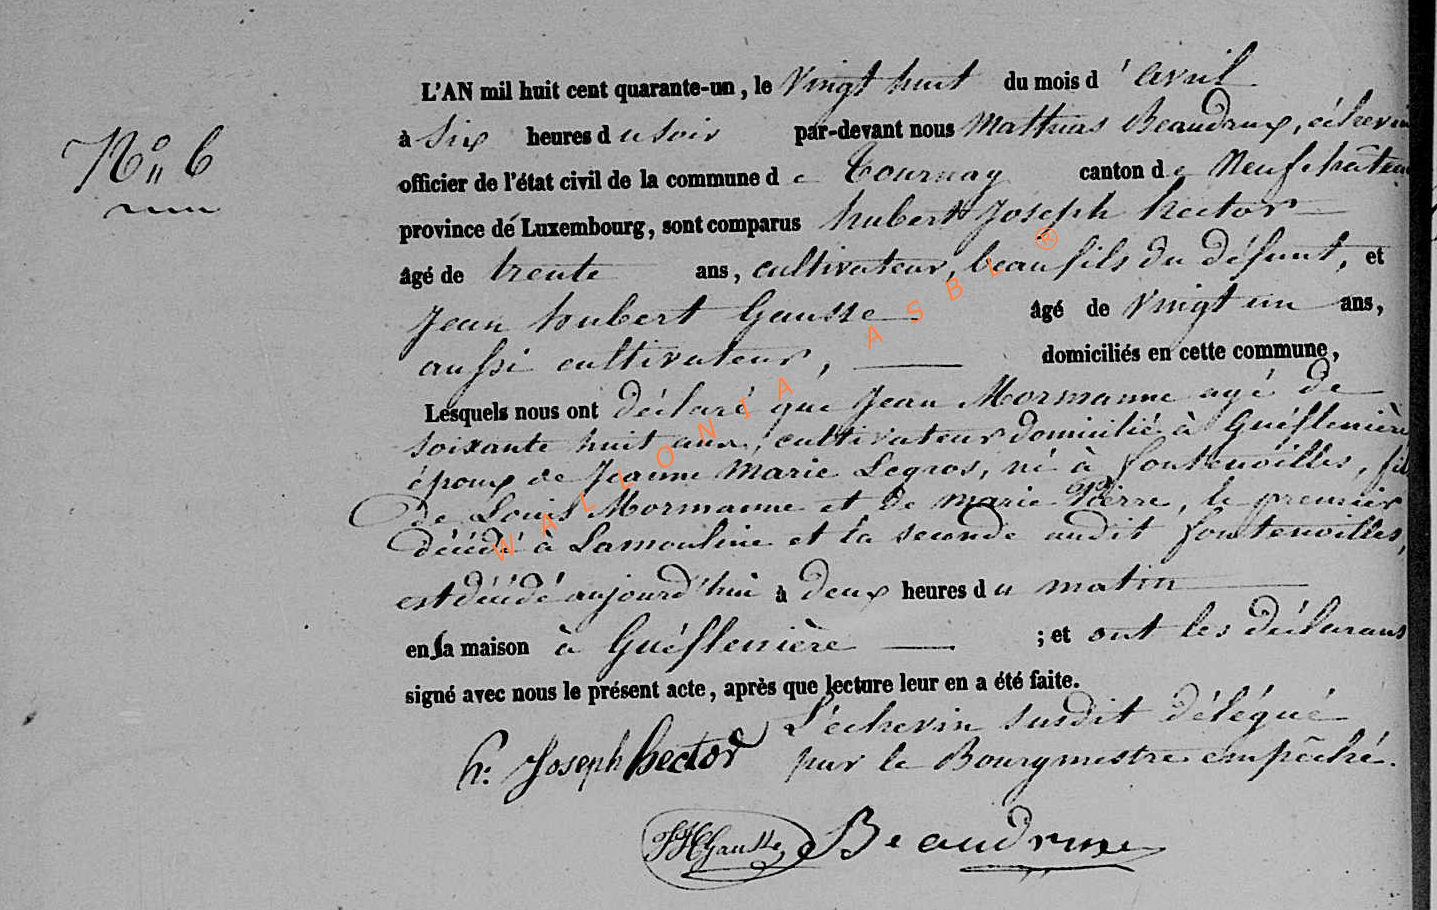 L'AN mil huit cent quarante-un, le vingt huit du mois d'avril
N° 6
à six heures du soir par-devant nous Mathias Beaudrux, échevin
officier de l'état civil de la commune de Tournay canton de Neufchâteau
province de Luxembourg, sont comparus hubert Joseph hector
âgé de trente ans, cultivateur, beau fils du défunt, et
Jean hubert Gausse âgé de vingt un ans,
aussi cultivateur, domiciliés en cette commune,
Lesquels nous ont déclaré que Jean Mormanne agé de
soixante huit ans, cultivateur domicilié à
époux de Jeanne Marie Legros, né à fontenoilles, fils
de Louis Mormanne et de marie pierre, le premier
décédé à Lamouline et la seconde audit fontenoilles,
est décédé aujourd'hui à deux heures du matin
en sa maison à ; et ont les déclarans
signé avec nous le présent acte, après que lecture leur en a été faite.
L'échevin susdit délégué
h: Joseph hector par le Bourgmestre empêché.
JHGausse Beaudrux
WALLONIA ASBL ®